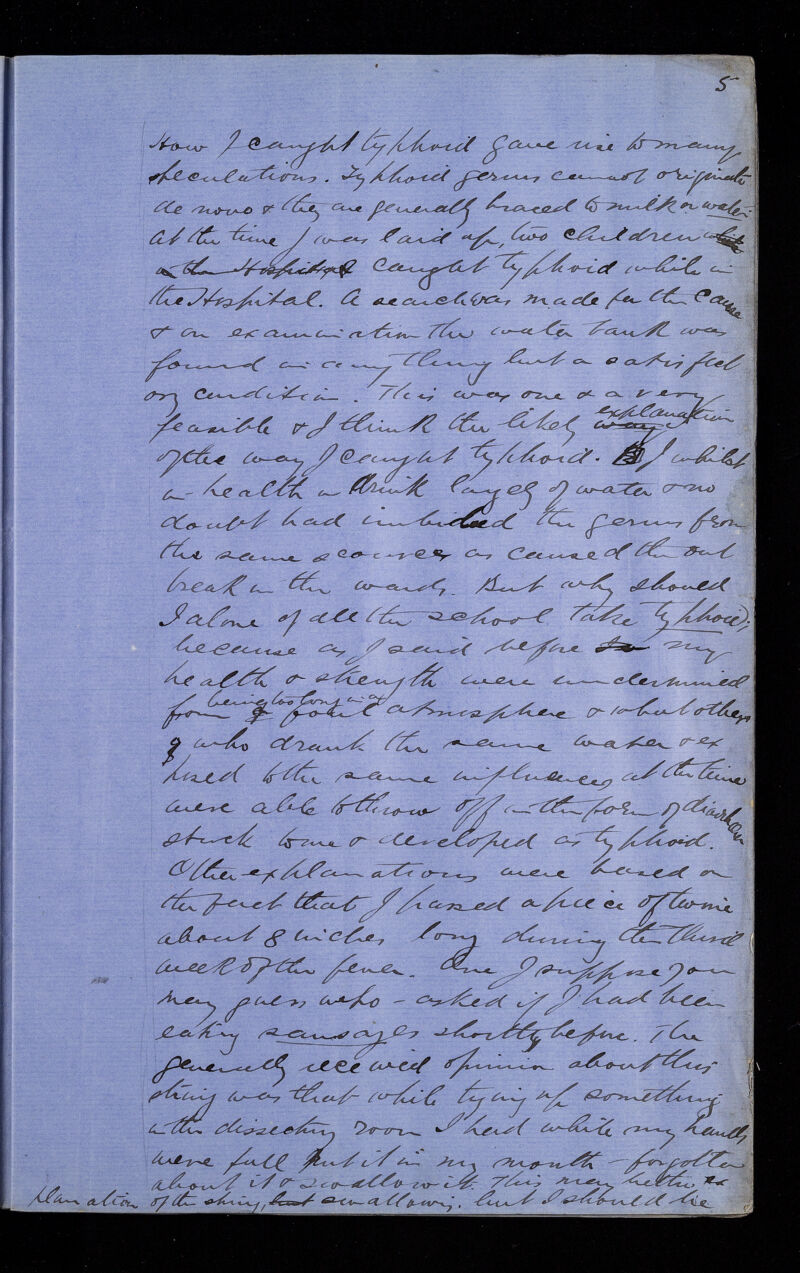 5
How I caught typhoid gave rise to many
speculations. Typhoid germs cannot originate
de novo & they are generally traced to milk or water.
At the time I was laid up, two children while
in the Hospital caught typhoid while in
the Hospital. A search was made for the cause
& on examination the water tank was
found in anything but a satisfact
ory condition. This was one & a very
feasible & I think the likely way explanation
of the way I caught typhoid. I whilst
in health drink largely of water & no
doubt had imbibed the germs from
the same sources as caused the out
break in the wards. But why should
I alone of all the school take typhoid;
because as I said before my
health & strength were undermined
from being too long in a foul atmosphere & what others
who drank the same water & ex
posed to the same influences at the time
were able to throw off in the form of diarrhoea
stuck to me & developed as typhoid.
Other explanations were based on
the fact that I passed a piece of twine
about 8 inches long during the third
week of the fever. One I suppose you
may guess who - asked if I had been
eating sausages shortly before. The
generally received opinion about this
string was that while tying up something
in the dissecting room I had while my hands
were full put it in my mouth - forgotten
about it & swallow it. This may be the ex
planation of the string, but swallowing. but I should be